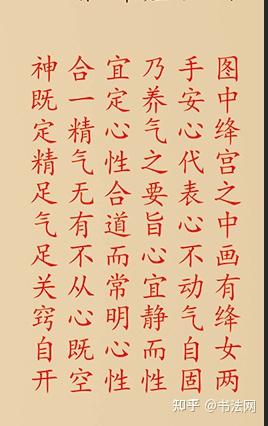 图中绛宫之中画有绛女两
手安心代表心不动气自固
乃养气之要旨心宜静而性
宜定心性合道而常明心性
合一精气无有不从心既空
神既定精足气足关窍自开
知乎 @书法网